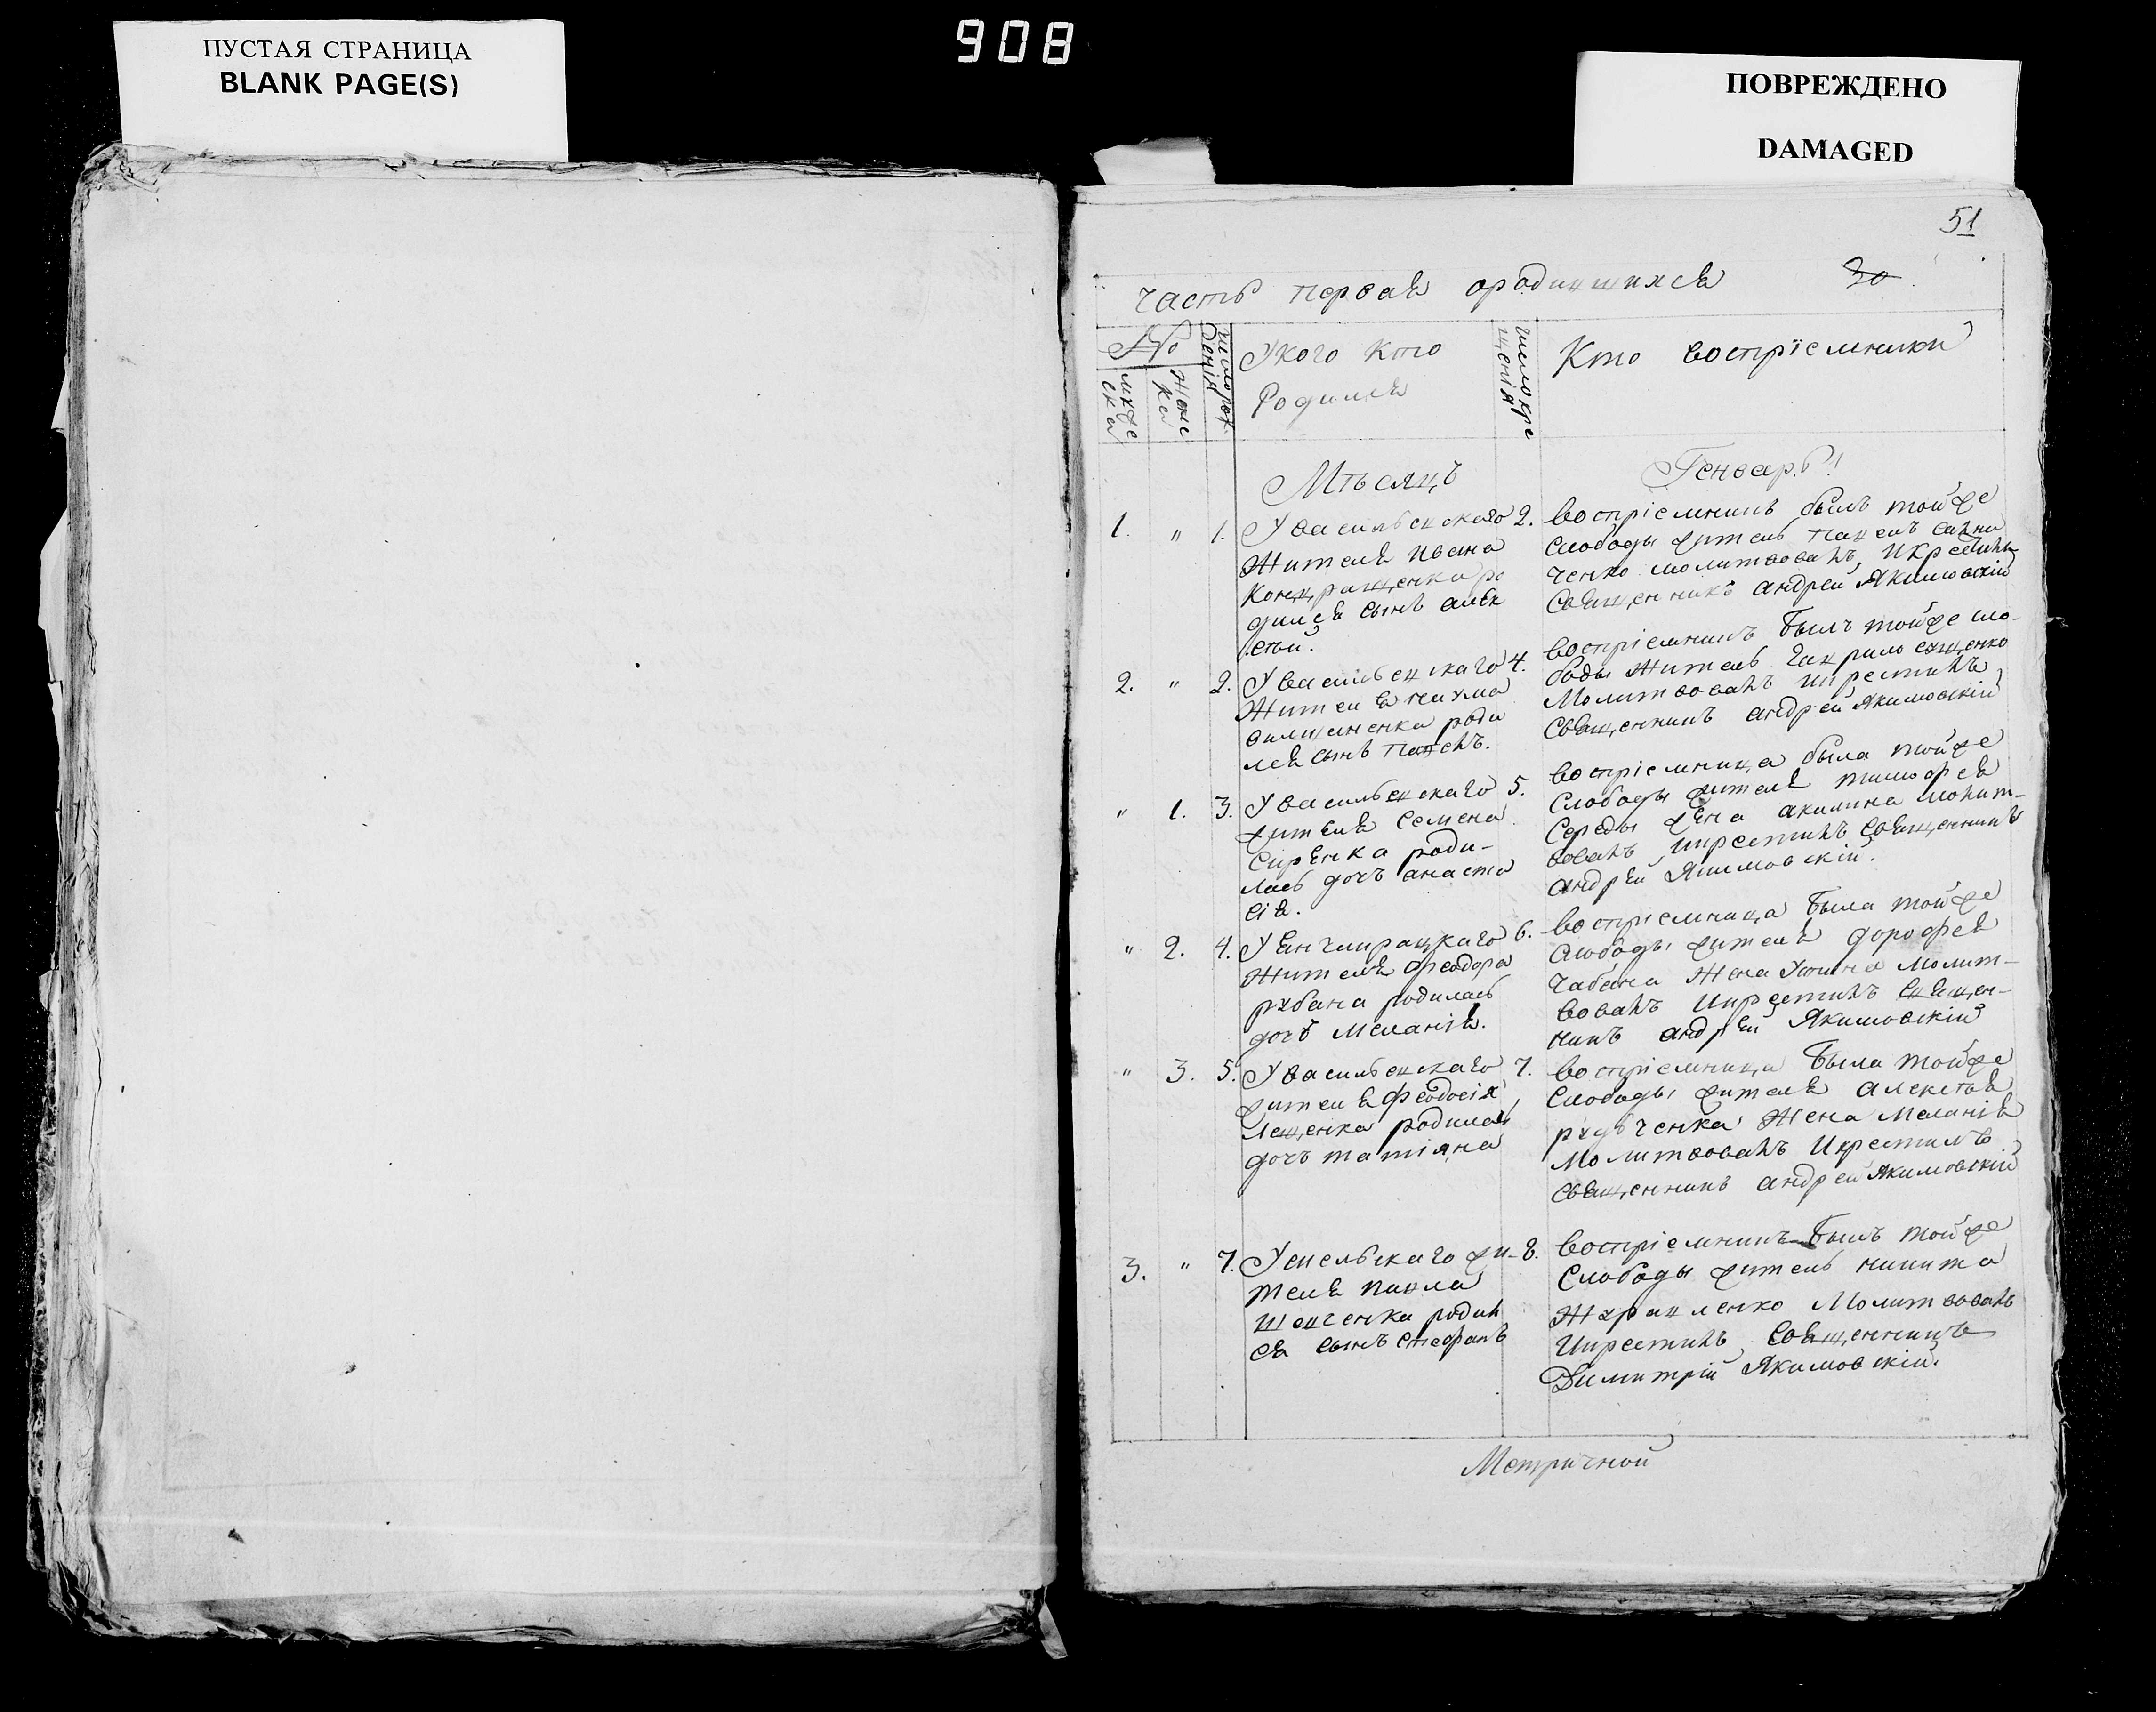 ПУСТАЯ СТРАНИЦА
BLANK PAGE(S)
908
ПОВРЕЖДЕНО
DAMAGED
51
Часть первая ородившихся 30
№
мужеска
женска
число рождения
У кого кто
Родился
число крещения
Кто воспріемники
Мѣсяцъ Генварь
1. " 1. У васильевскаго
жителя Ивана
родился сынъ алек
сѣй.
2. воспріемникъ былъ тойже
слободы житель павелъ
молитвовалъ, икрестилъ
священникъ андрей Якимовскій
2. " 2. У васильевскаго
жителя наума
роди
лся сынъ павелъ.
4. воспріемникъ былъ тойже сло-
боды житель гаврило
молитвовалъ икрестилъ
священникъ андрей Якимовскій
" 1. 3. У васильевскаго
жителя семена
роди-
лась дочь анаста
сія.
5. воспріемница была тойже
слободы жителя тимофея
Середы жена акилина молит-
вовалъ икрестилъ священникъ
андрей Якимовскій.
" 2. 4.
жителя феодора
рубана родилась
дочь меланія.
6. воспріемница была тойже
слободы жителя дорофея
чабана жена молит-
вовалъ икрестилъ священ-
никъ андрей Якимовскій
" 3. 5. У васильевскаго
жителя феодосія
лещенка родилась
дочь татіяна
7. воспріемница была тойже
слободы жителя алексѣя
рудченка жена меланія
молитвовалъ икрестилъ
священникъ андрей Якимовскій
3. " 7. жи-
теля павла
шевченка родил
ся сынъ стефанъ
8. воспріемникъ былъ тойже
слободы житель никита
журавленко молитвовалъ
икрестилъ священникъ
Димитрій Якимовскій.
Метричной